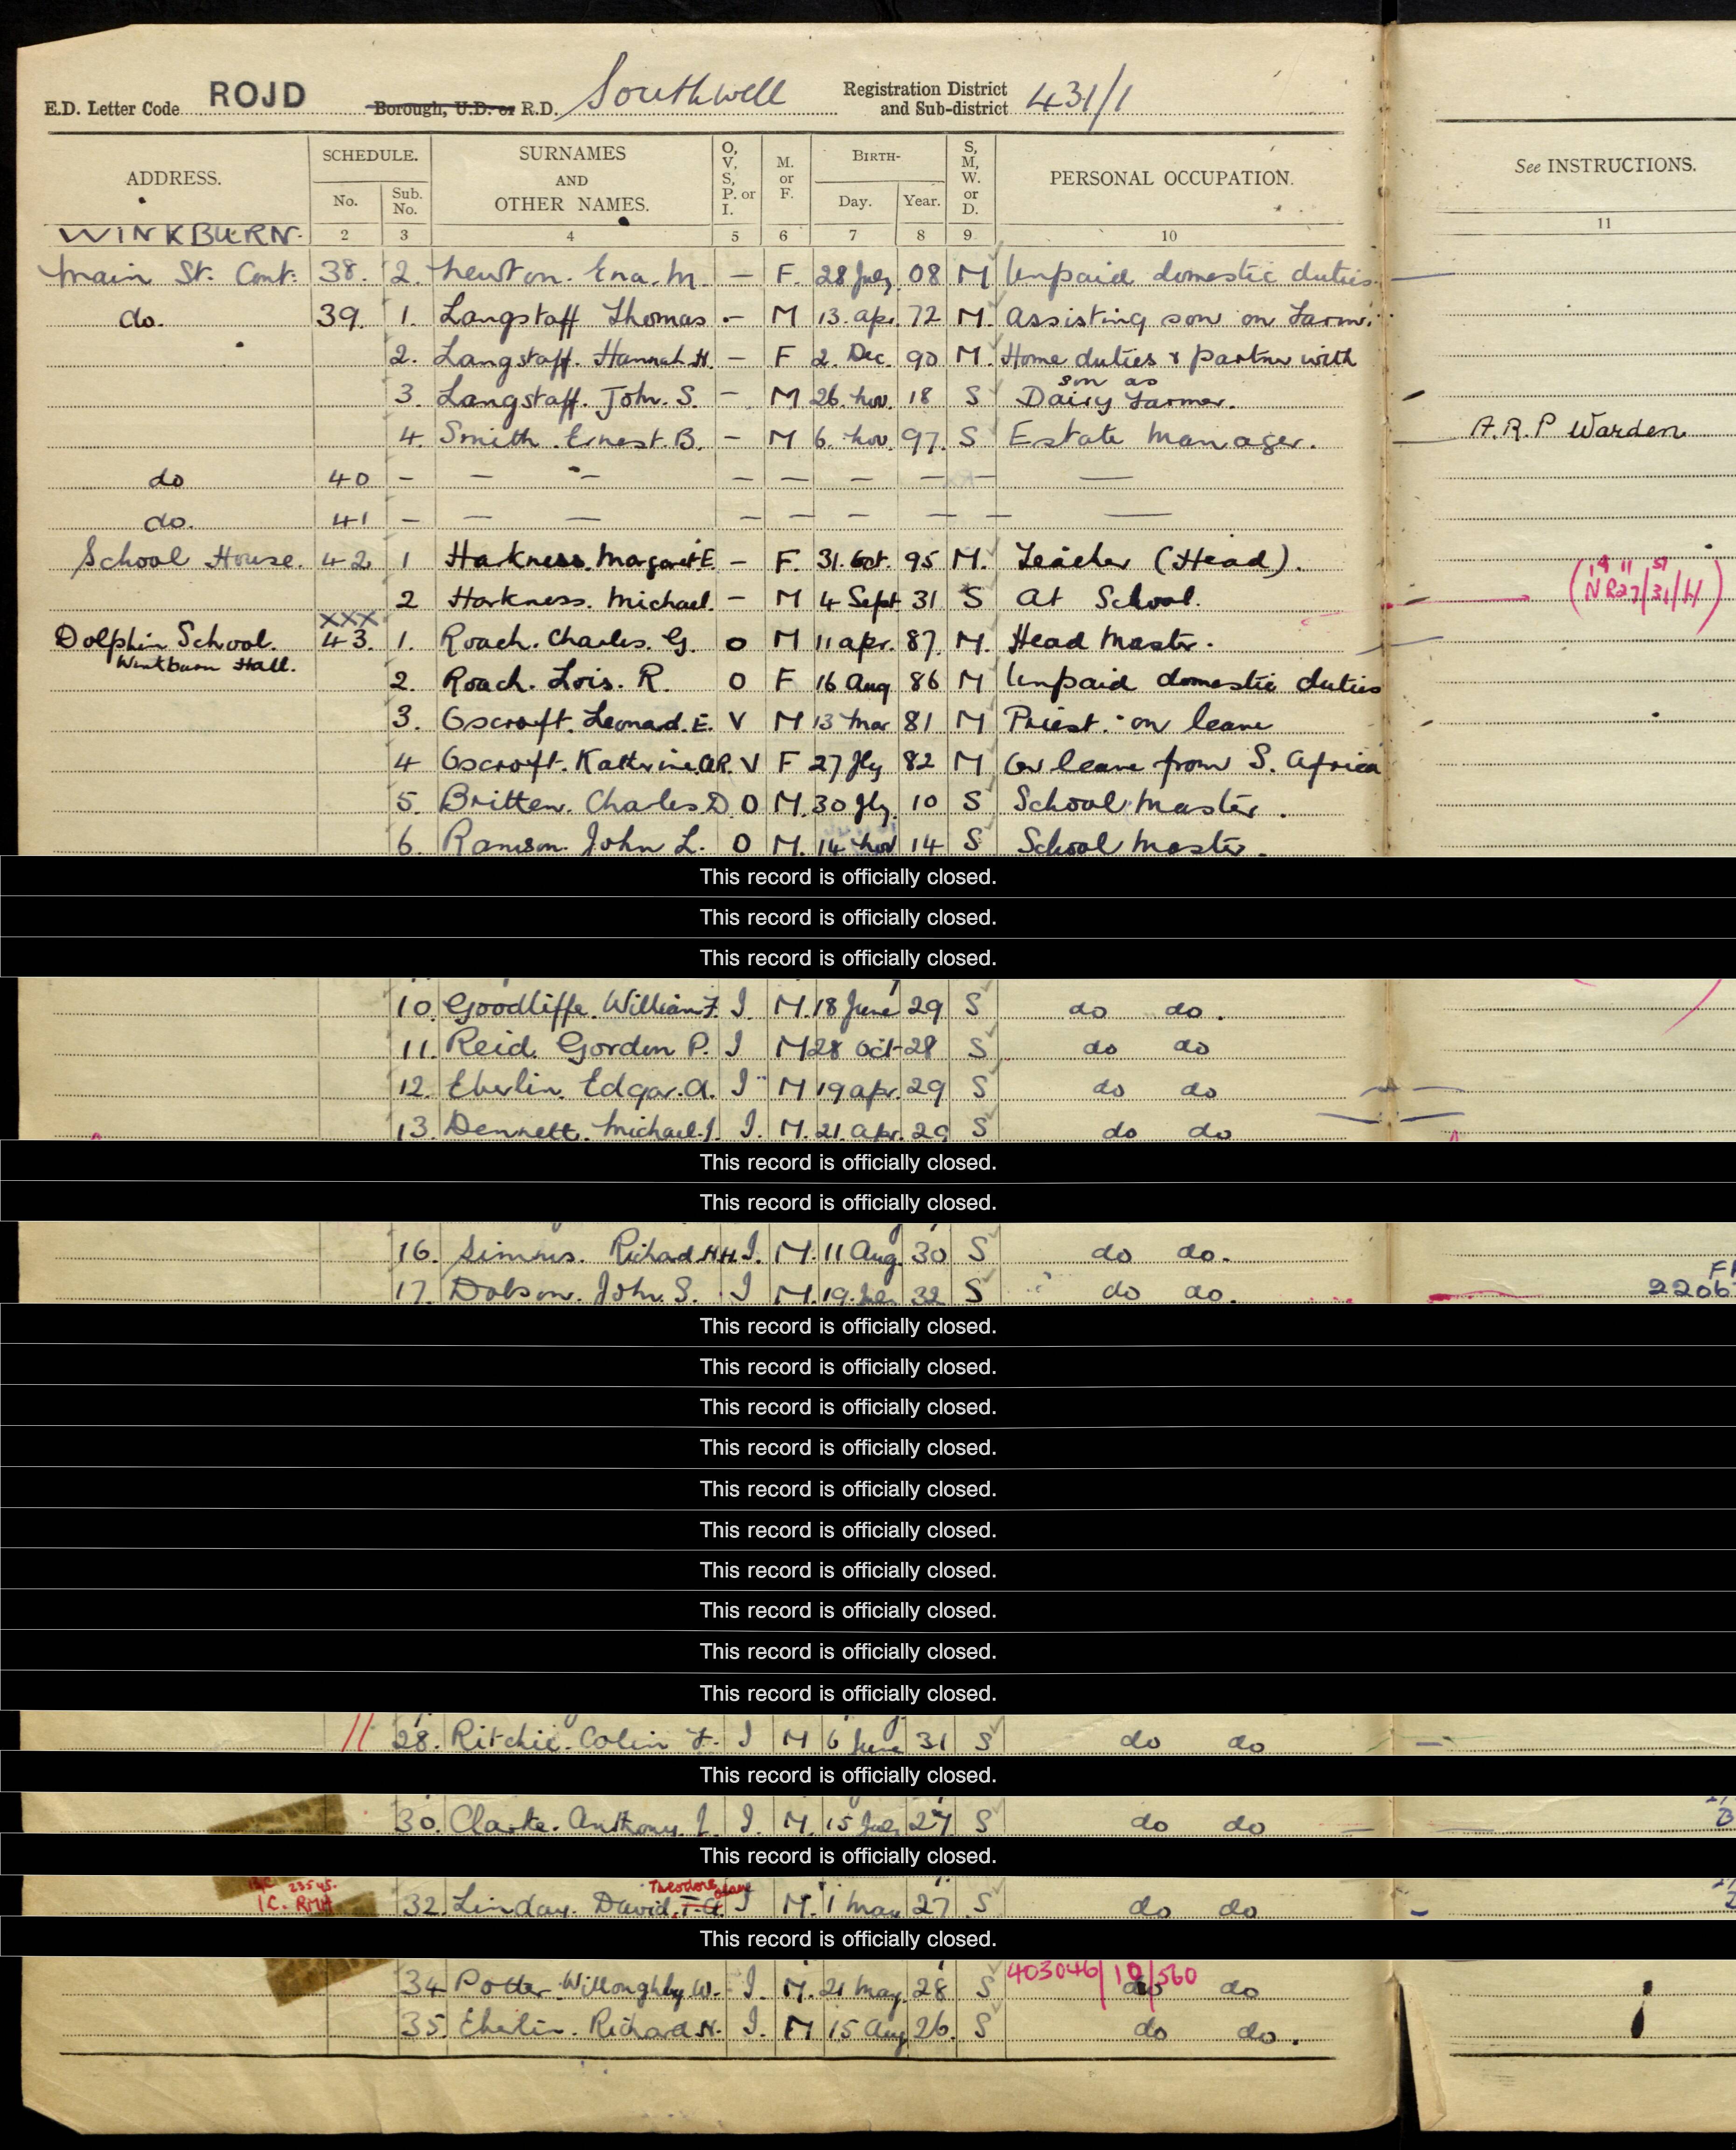 E.D. Letter Code ROJD Borough, U.D. or R.D. Southwell Registration District and Sub-district 431/1
ADDRESS. SCHEDULE. No. Sub. No. SURNAMES AND OTHER NAMES. O, V, S, P. or I. M. or F. BIRTH- Day. Year. S, M, W. or D. PERSONAL OCCUPATION. See INSTRUCTIONS.
WINKBURN. 2 3 4 5 6 7 8 9 10 11
Main St: Cont: 38. 2. Newton. Ena. M. — F. 28 July 08 M Unpaid domestic duties.
do. 39. 1. Langstaff Thomas — M 13. Apr. 72 M. Assisting son on Farm.
2. Langstaff. Hannah H. — F 2. Dec. 90 M. Home duties & partner with
son as
3. Langstaff. John. S. — M 26. Nov. 18 S Dairy Farmer.
4. Smith. Ernest. B. — M 6. Nov. 97. S Estate Manager. A.R.P Warden
do 40 — — — — — — — — —
do. 41 — — — — — — — — —
School House. 42 1 Harkness. Margaret E. — F. 31. Oct. 95 M. Teacher (Head).
2 Harkness. Michael. — M 4 Sept 31 S At School. (NR27/31/H)
XXX
Dolphin School. 43. 1. Roach. Charles. G. O M 11 Apr. 87. M. Head Master.
Winkburn Hall.
2. Roach. Lois. R. O F 16 Aug 86 M Unpaid domestic duties
3. Oscroft. Leonard. E. V M 13 Mar 81 M Priest: on leave
4 Oscroft. Katherine A.R. V F 27 Jly 82 M On leave from S. Africa
5. Britten. Charles D O M. 30 Jly. 10 S School Master.
6. Ranson. John L. O M. 14 Nov 14 S School Master.
This record is officially closed.
This record is officially closed.
This record is officially closed.
10. Goodliffe. William F. I. M. 18 June 29 S do do.
11. Reid. Gordon P. I M 28 Oct 28 S do do
12. Eberlin. Edgar. A. I M 19 Apr. 29 S do do
13. Dennett. Michael. J. I. M. 21. Apr. 29 S do do
This record is officially closed.
This record is officially closed.
16. Simms. Richard H.H. I. M. 11 Aug. 30 S do do.
17. Dobson. John. S. I M. 19. 32 S do do. 2206
This record is officially closed.
This record is officially closed.
This record is officially closed.
This record is officially closed.
This record is officially closed.
This record is officially closed.
This record is officially closed.
This record is officially closed.
This record is officially closed.
This record is officially closed.
28. Ritchie. Colin F. I M 6 June 31 S do do
This record is officially closed.
30. Clarke. Anthony. J. I. M. 15 27 S do do
This record is officially closed.
Theodore
1C. RMH 32. Linday. David. I M. 1 May 27 S do do
This record is officially closed.
403046/10/560
34 Potter. Willoughby. W. I. M. 21 May. 28 S do do
35. Eberlin. Richard. H. I. M 15 Aug 26. S do do.